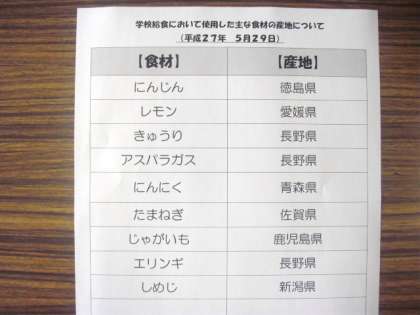 学校給食において使用した主な食材の産地について
（平成２７年　５月２９日）
【食材】　【産地】
にんじん　徳島県
レモン　愛媛県
きゅうり　長野県
アスパラガス　長野県
にんにく　青森県
たまねぎ　佐賀県
じゃがいも　鹿児島県
エリンギ　長野県
しめじ　新潟県